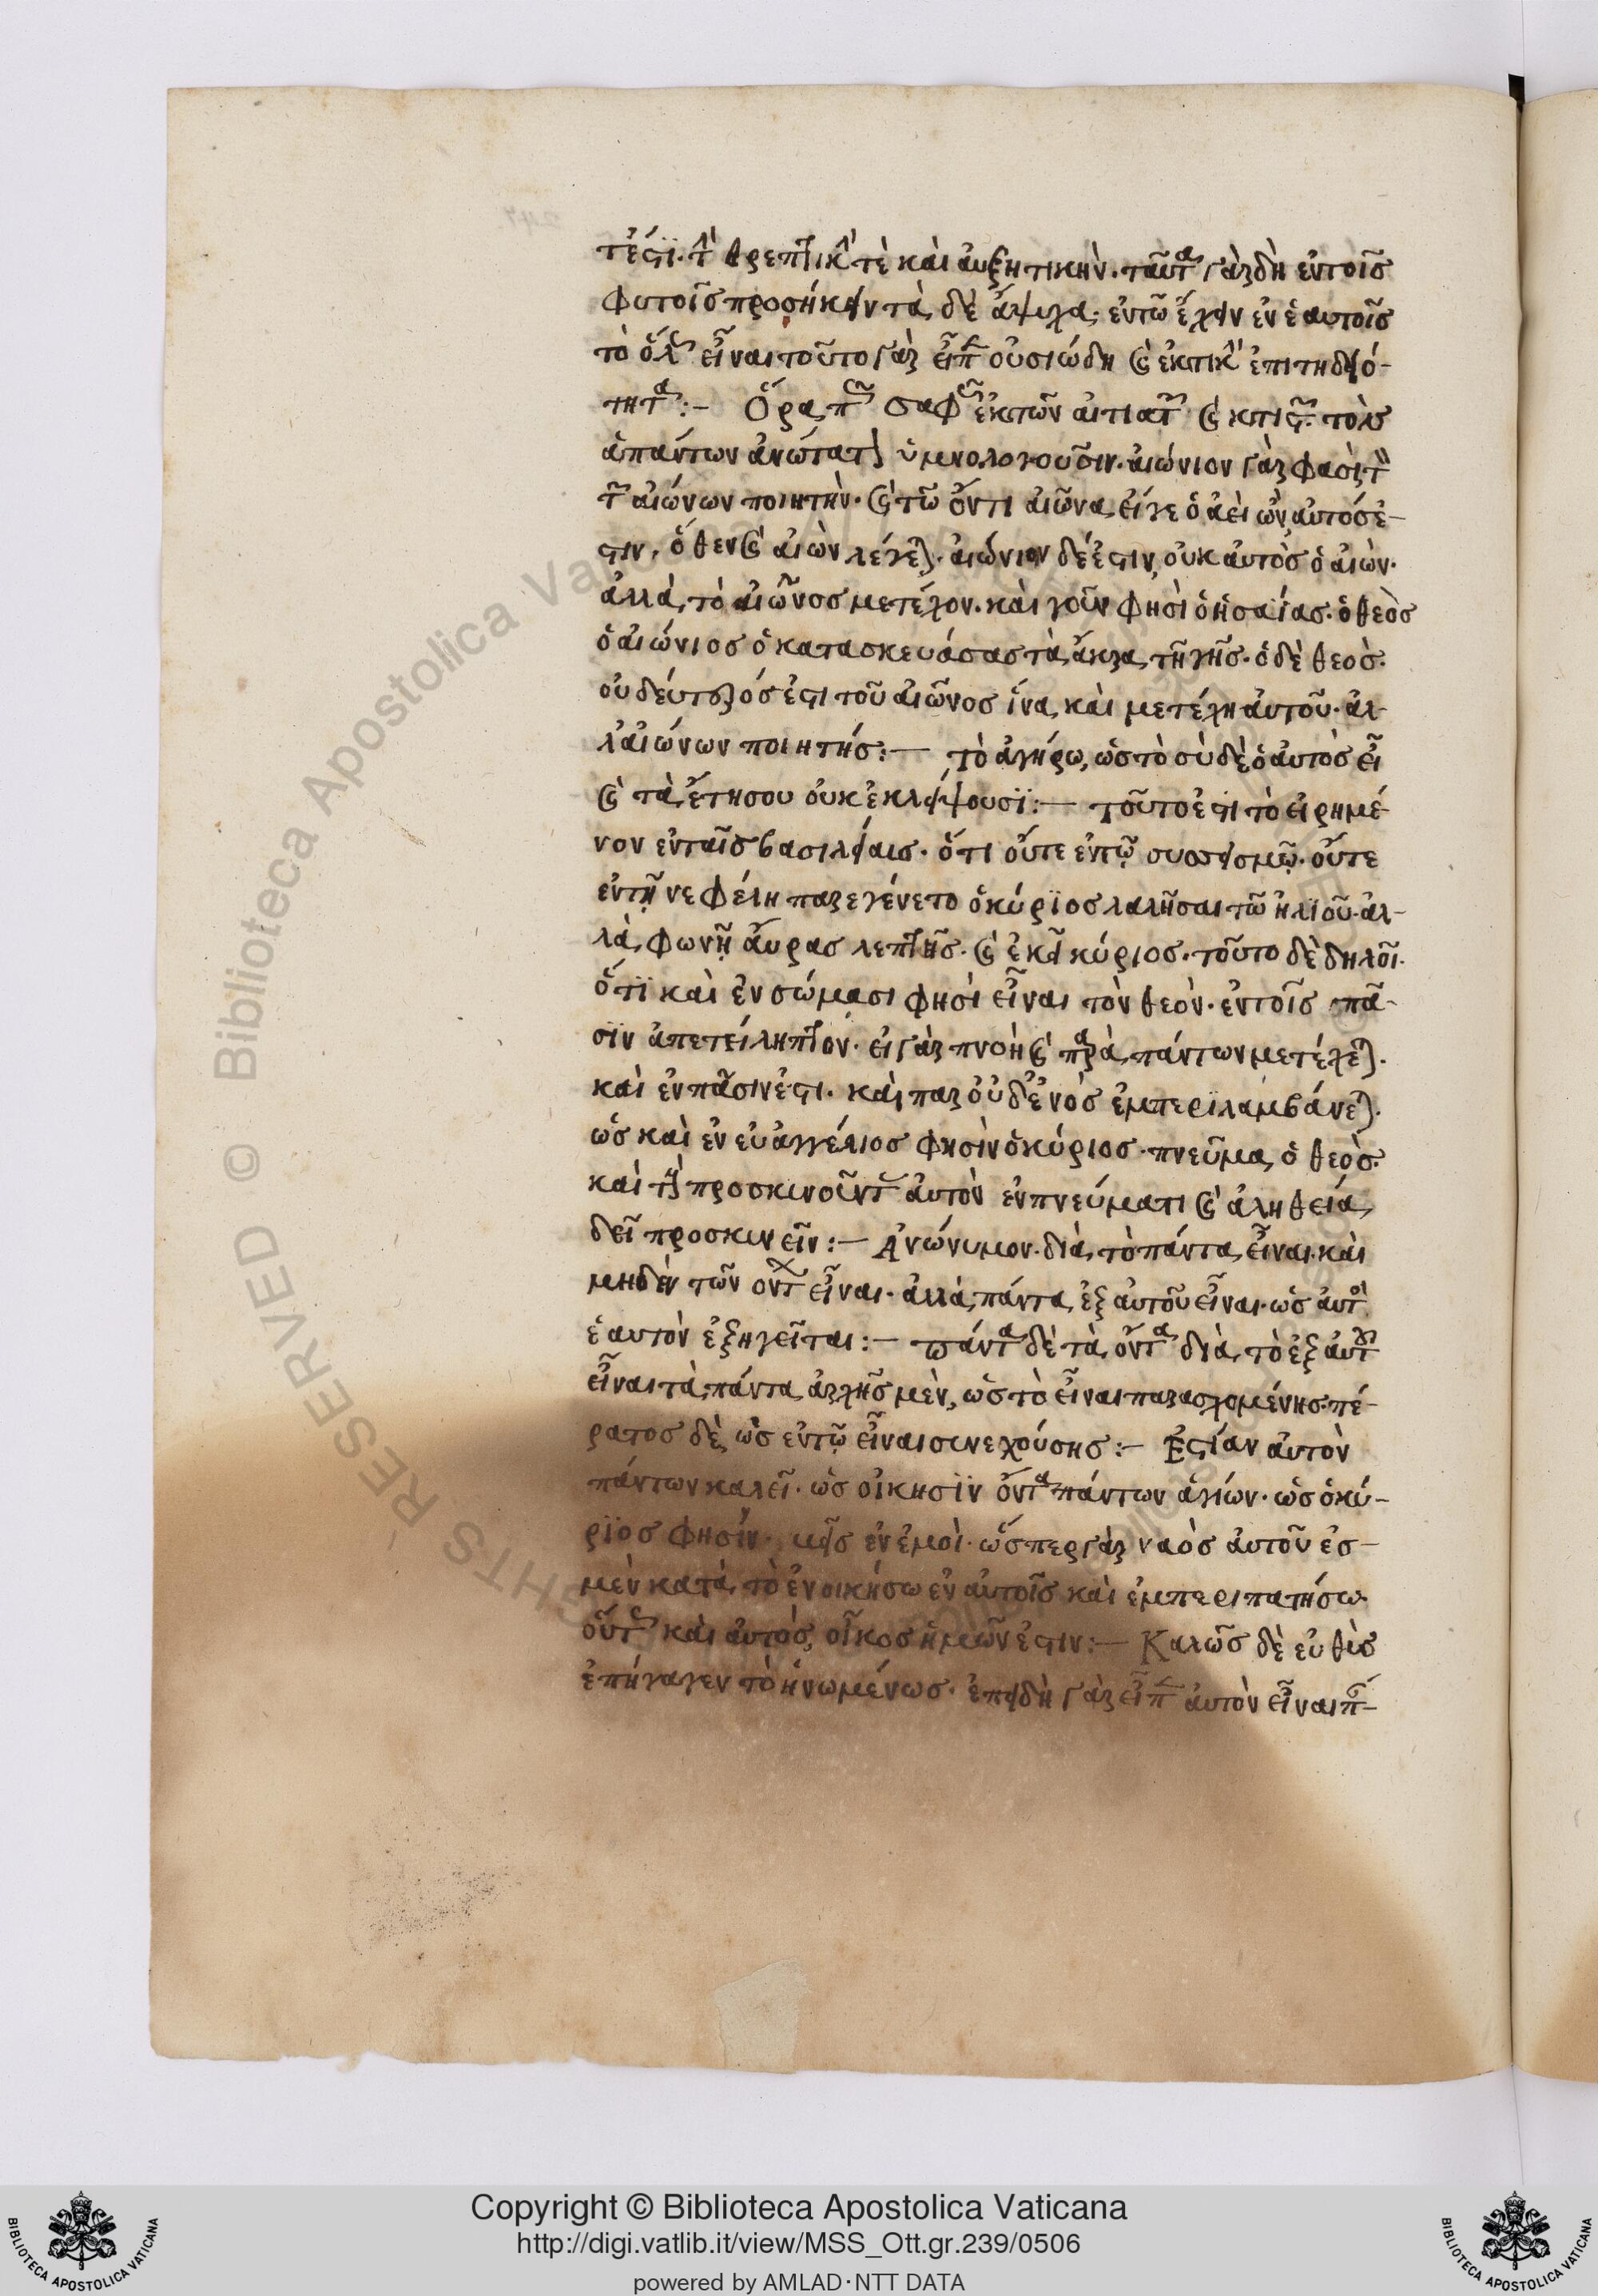 τέστι. τ̀ θρεπτικ̀ τὲ καὶ αὐξητικὴν. ταῦτα γὰρ δὴ ἐντοῖς
φυτοῖς προσήκειν τὰ δὲ ἄψυχα· ἐντῶ ἔχειν ἐν ἑαυτοῖς
τὸ ὅλ εἶναι τοῦτο γὰρ εἶπ οὐσιώδη καὶ ἑκτικ̀ ἐπιτηδειό-
τητα:- Ὅρα πῶς σαφῶς ἐκτῶν αἰτιατῶν καὶ κτιστῶν τοὺς
ἁπάντων ἀνώτατ ὑμνολογοῦσιν. αἰώνιον γὰρ φασὶ τὸν
τῶν αἰώνων ποιητὴν. καὶ τῶ ὄντι αἰῶνα, εἴγε ὁ ἀεὶ ὢν αὐτόσ ἐ-
στιν, ὅθεν καὶ αἰὼν λέγεται. αἰώνιον δέ ἐστιν, οὐκ αὐτὸς ὁ αἰὼν.
ἀλλὰ, τὸ αἰῶνος μετέχον. καὶ γοῦν φησὶ ὁ ἡσαΐας. ὁ θεὸς
ὁ αἰώνιος ὁ κατασκευάσας τὰ ἄκρα, τῆ γῆς. ὁ δὲ θεὸς.
οὐ δεύτερός ἐστι τοῦ αἰῶνος ἵνα, καὶ μετέχη αὐτοῦ. ἀλ-
λ᾽ αἰώνων ποιητής:- τὸ ἀγήρω, ὡς τὸ σὺ δὲ ὁ αὐτὸς εἶ
καὶ τὰ ἔτη σου οὐκ ἐκλείψουσϊ:- τοῦτο ἐστι τὸ εἰρημέ-
νον ἐνταῖς βασιλείαις. ὅτι οὔτε ἐντῷ συσεισμῷ. οὔτε
ἐντῇ νεφέλη παρεγένετο ὁ κύρϊος λαλῆσαι τῶ ἠλϊοῦ. ἀλ-
λὰ, φωνῇ αὔρας λεπτῆς. καὶ ἐκεῖ κύριος. τοῦτο δὲ δηλοῖ.
ὅτϊ καὶ ἐν σώμασι φησὶ εἶναι τὸν θεὸν. ἐντοῖς πᾶ-
σϊν ἀπετείληπτον. εἰ γὰρ πνοὴ καὶ παρὰ, πάντων μετέχεται.
καὶ ἐν πᾶσιν ἐστι. καὶ παρ οὐδενὸς ἐμπερϊλαμβάνεται.
ὡς καὶ ἐν εὐαγγέλιος φησὶν ὁ κύριος. πνεῦμα, ὁ θεὸς.
καὶ τοὺς προσκυνοῦντας αὐτὸν ἐν πνεύματι καὶ ἀληθείᾳ
δεῖ προσκυνεῖν:- Ἀνώνυμον. διὰ, τὸ πάντα, εἶναι. καὶ
μηδὲν τῶν ὄντων εἶναι. ἀλλὰ, πάντα, ἐξ αὐτοῦ εἶναι. ὡς αὐτὸς
ἑαυτὸν ἐξηγεῖται:- πάντα δὲ τὰ, ὄντα διὰ, τὸ ἐξ αὐτοῦ
εἶναι τὰ, πάντα, ἀρχῆς μὲν, ὡς τὸ εἶναι παρασχομένης. πέ-
ρατος δὲ, ὡς ἐντῷ εἶναι συνεχούσης:- Ἑστίαν αὐτὸν
πάντων καλεῖ. ὡς οἴκησϊν ὄντα πάντων ἁγίων. ὡς ὁ κύ-
ρϊος φησίν. μεῖς ἐν ἐμοὶ. ὥσπερ γὰρ ναὸς αὐτοῦ ἐσ-
μὲν κατὰ, τὸ ἐνοικήσω ἐν αὐτοῖς καὶ ἐμπεριπατήσω.
οὕτως καὶ αὐτὸς, οἶκος ἡμῶν ἐστιν:- Καλῶς δὲ εὐθὺς
ἐπήγαγεν τὸ ἡνωμένως. ἐπειδὴ γὰρ εἶπ αὐτὸν εἶναι π-
Copyright © Biblioteca Apostolica Vaticana
http://digi.vatlib.it/view/MSS_Ott.gr.239/0506
powered by AMLAD·NTT DATA